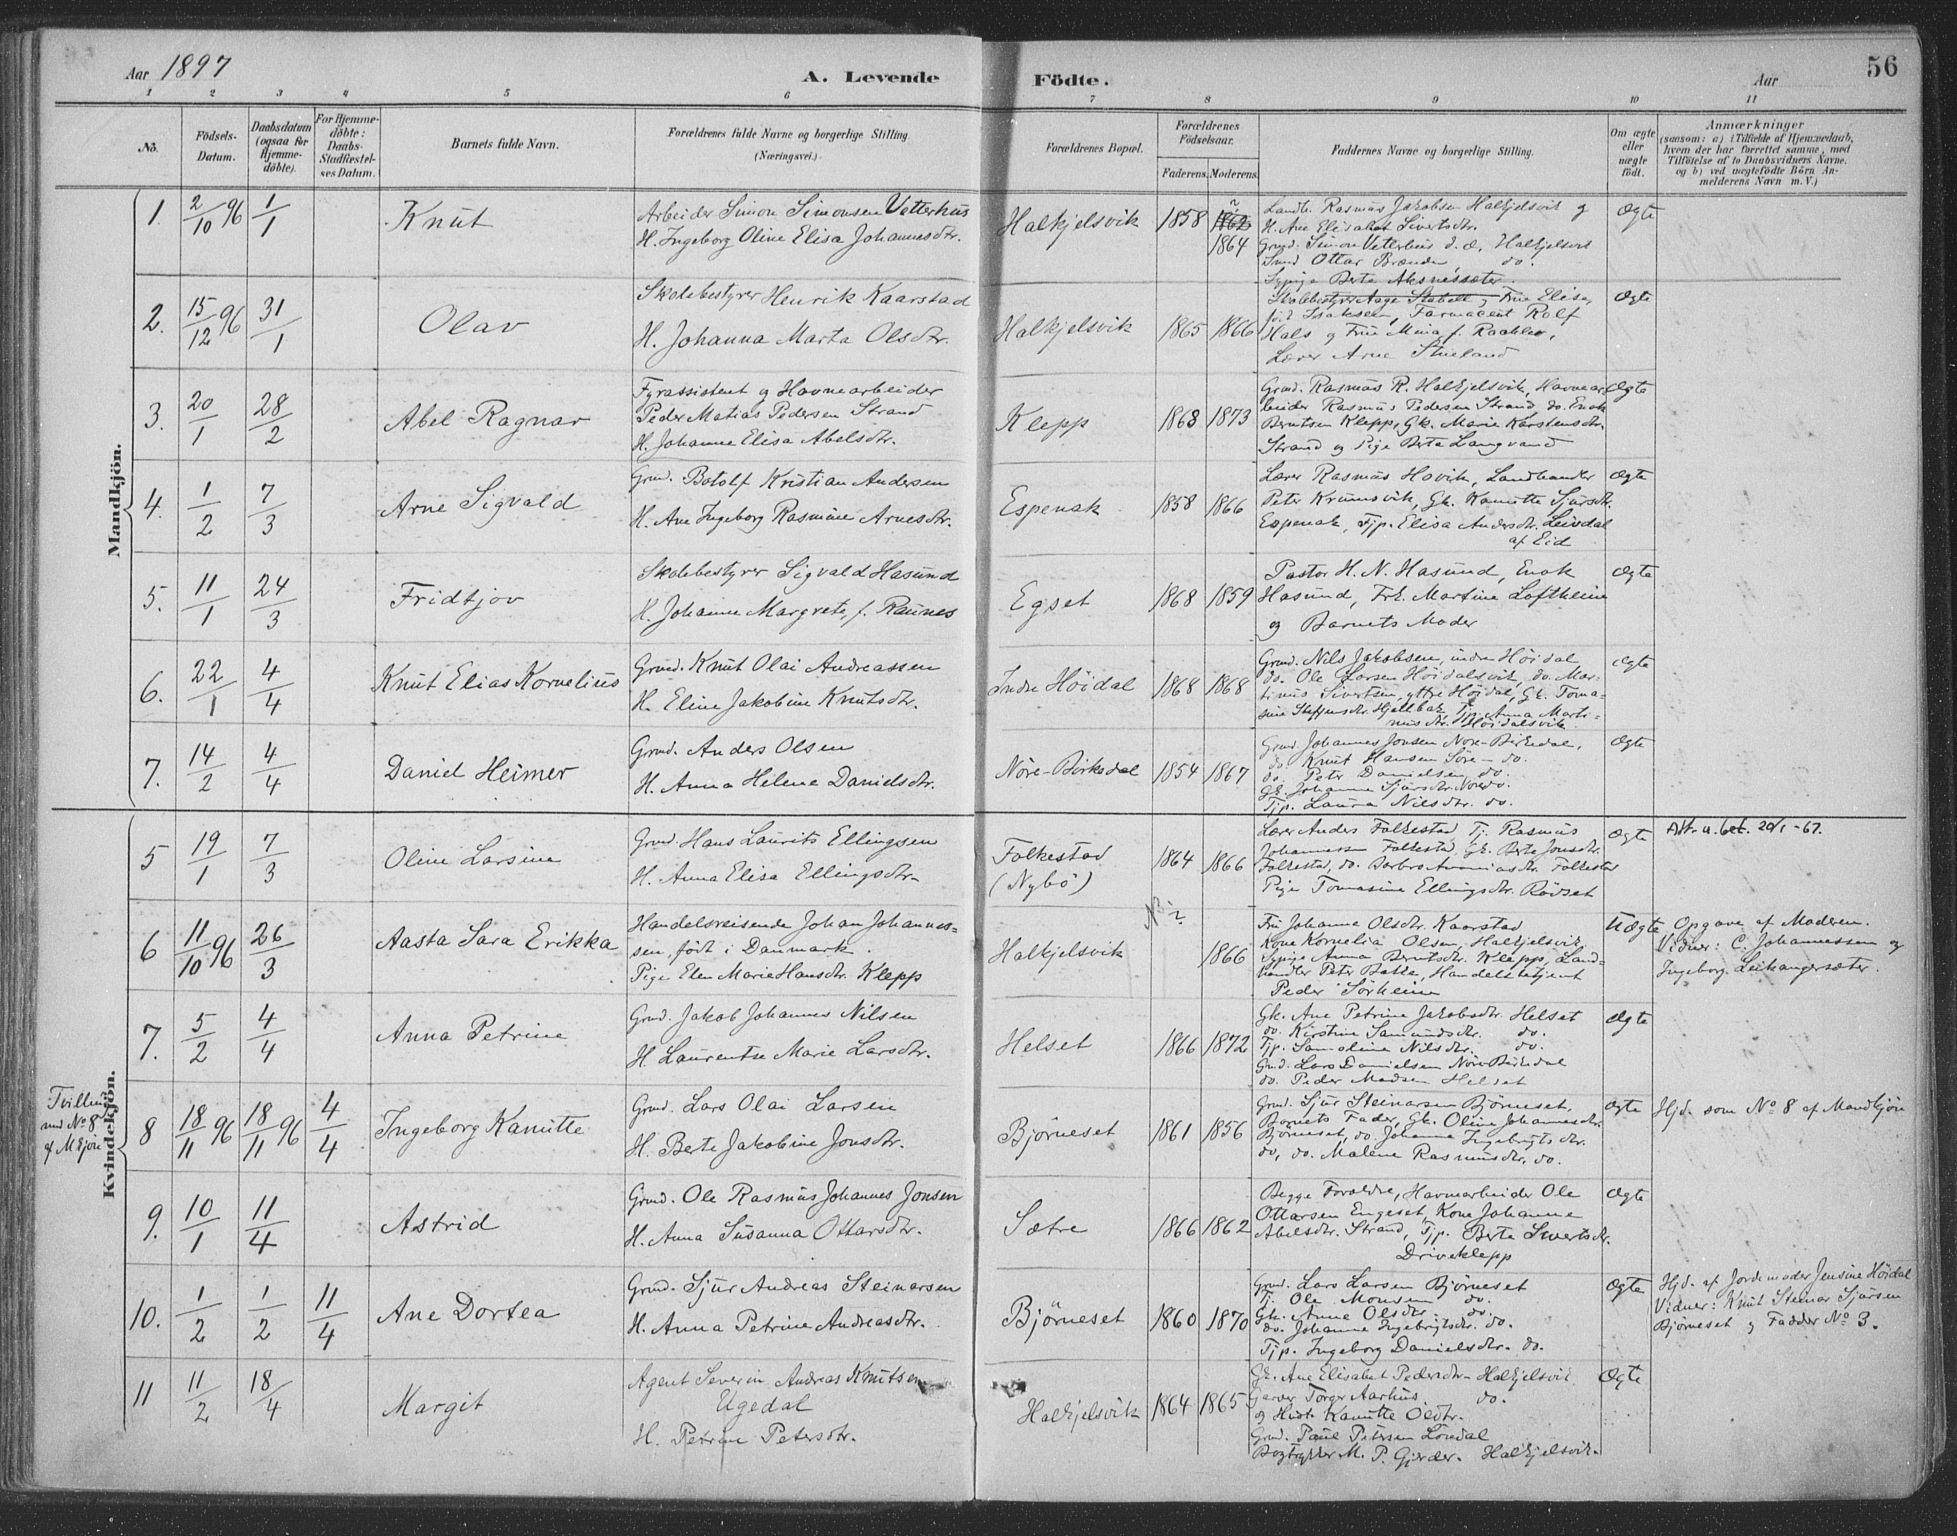 Aar 1897 A. Levende Födte. Aar 56
1 2 3 4 5 6 7 8 9 10 11
No. Födsels-Datum. Daabsdatum (ogsaa for Hjemme-døbte). For Hjemme-døbte: Daabs-Stadfæstel-ses Datum. Barnets fulde Navn. Forældrenes fulde Navne og borgerlige Stilling. (Næringsvei.) Forældrenes Bopæl. Forældrenes Födselsaar. Faderens. Moderens. Faddernes Navne og borgerlige Stilling. Om ægte eller uægte født. Anmærkninger (saasom: a) i Tilfælde af Hjemmedaab, hvem der har forrettet samme, med Tilföielse af to Daabsvidners Navne. og b) ved uægtefödte Börn An-melderens Navn m. V.)
Mandkjön.
1. 2/10 96 1/1 Knut
Arbeider Simon Simonsen Vetterhus
H. Ingeborg Oline Elisa Johannesdtr.
Halkjelsvik 1858 1862 1864
Landh. Rasmus Jakobsen Halkjelsvik og
H. Ane Elisabet Sivertsdtr.
Grmd. Simon Vetterhus d. æ. Halkjelsvik
Smed Ottar Brænden do.
Sypige Berte Aksnessæter
Ægte
2. 15/12 96 31/1 Olav
Skolebestyrer Henrik Kaarstad
H. Johanna Marta Olsdtr.
Halkjelsvik 1865 1866
Skolebestyrer Aage Stabell, Frue Elise,
fød Isaksen, Farmaceut Rolf
Hals og Frue Maia f. Raabler,
Lærer Arne
Ægte
3. 20/1 28/2 Abel Ragnar
Fyrassistent og Havnearbeider
Peder Matias Pedersen Strand
H. Johanne Elisa Abelsdtr.
Klepp 1868 1873
Grmd. Rasmus R. Halkjelsvik, Havnear-
beider Rasmus Pedersen Strand, do. Enok
Berntsen Klepp, Gk. Marie Karstensdtr.
Strand og Pige Berta Langvand
Ægte
4. 1/2 7/3 Arne Sigvald
Grmd. Botolf Kristian Andersen
H. Ane Ingeborg Rasmine Arnesdtr.
Espenak 1858 1866
Lærer Rasmus Hovik, Landhandler
Peter Krumsvik, Gk. Kanutte Sjursdtr.
Espenak, Tjp. Elisa Andersdtr. Leivdal
af Eid
Ægte
5. 11/1 24/3 Fridtjov
Skolebestyrer Sigvald Hasund
H. Johanne Margrete, f. Raunes
Egset 1868 1859
Pastor H. N. Hasund, Enok
Hasund, Frk. Martine Loftheim
og Barnets Moder
Ægte
6. 22/1 4/4 Knut Elias Kornelius
Grmd. Knut Olai Andreassen
H. Eline Jakobine Knutsdtr.
Indre Höidal 1868 1868
Grmd. Nils Jakobsen, indre Höidal,
do. Ole Larsen Höidalsvik, do. Mar-
tinus Sivertsen, yttre Höidal, Gk. Toma-
sine Steffensdtr. Hjellbak, Tjp. Anna Marti-
nusdtr. Höidalsvik
Ægte
7. 14/2 4/4 Daniel Heimer
Grmd. Anders Olsen
H. Anna Helene Danielsdtr.
Nöre-Birkedal 1854 1867
Grmd. Johannes Jonsen Nöre-Birkedal,
do. Knut Hansen Söre- do.
do. Peter Danielsen, do.
Gk. Johanne Sjursdtr. Nöre do.
Tjp. Laura Nilsdtr. do.
Ægte
Kvindekjön.
5 19/1 7/3 Oline Larsine
Grmd. Hans Laurits Ellingsen
H. Anna Elisa Ellingsdtr.
Folkestad (Nybö) 1864 1866
Lærer Anders Folkestad, Tj. Rasmus
Johannesen Folkestad, Gk. Berte Jonsdtr.
Folkestad, do. Barbro Ananiasdtr. Folkestad
Pige Tomasine Ellingsdtr. Rödset
Ægte Att. u. bet. 20/1-67.
6 11/10 96 26/3 Aasta Sara Erikka
Handelsreisende Johan Johannes-
sen, født i Danmark.
Pige Elen Marie Hansdtr. Klepp
Halkjelsvik 1866
Fru Johanna Olsdtr. Kaarstad
Kone Kornelia Olsen, Halkjelsvik
Sypige Anna Berntsdtr. Klepp, Land-
handler Peter Bakke, Handelsbetjent
Peder Sörheim
Uægte Opgave af Moderen.
Vidner: C. Johannessen og
Ingeborg Leikangersæter.
7. 5/2 4/4 Anna Petrine
Grmd. Jakob Johannes Nilsen
H. Laurentse Marie Larsdtr.
Helset 1866 1872
Gk. Ane Petrine Jakobsdtr. Helset
do. Kirstine Samundsdtr. do.
Tjp. Samoline Nilsdtr. do.
Grmd. Lars Danielsen Nöre Birkedal
do. Peder Madsen Helset
Ægte
Tvilling med No 8 af Mkjön
8 18/11 96 18/11 96 4/4 Ingeborg Kanutte
Grmd. Lars Olai Larsen
H. Berte Jakobine Jonsdtr.
Bjørneset 1861 1856
Grmd. Sjur Steinarsen Bjørneset,
Barnets Fader, Gk. Oline Johannesdtr.
Bjørneset, do. Johanna Ingebrigtsdtr.
do, do. Malene Rasmusdtr. do.
Ægte Hjd. som No 8 af Mandkjön
9. 10/1 11/4 Astrid
Grmd. Ole Rasmus Johannes Jonsen
H. Anna Susanna Ottarsdtr.
Sætre 1866 1862
Begge Forældre, Havnarbeider Ole
Ottarsen Engeset, Kone Johanne
Abelsdtr. Strand, Tjp. Berte Sivertsdtr.
Driveklepp
Ægte
10. 1/2 1/2 11/4 Ane Dortea
Grmd. Sjur Andreas Steinarsen
H. Anna Petrine Andreasdtr.
Bjørneset 1860 1870
Grmd. Lars Larsen Bjørneset
Tj. Ole Monsen do.
Gk. Anne Olsdtr. do.
do. Johanne Ingebrigtsdtr. do.
Tjp. Ingeborg Danielsdtr. do.
Ægte Hjd. af Jordemoder Jensine Höidal
Vidner: Knut Steinar Sjursen
Bjørneset og Fadder No 3.
11 11/2 18/4 Margit
Agent Severin Andreas Knutsen
Ugedal
H. Petrine Petersdtr.
Halkjelsvik 1864 1865
Gk. Ane Elisabet Pedersdtr. Halkjelsvik
Garver Torger Aarhus, do.
og Hustr. Kanutte Olsdtr.
Grmd. Paul Petersen Löndal
Bogtrykker M. P. Gjerder. Halkjelsvik.
Ægte